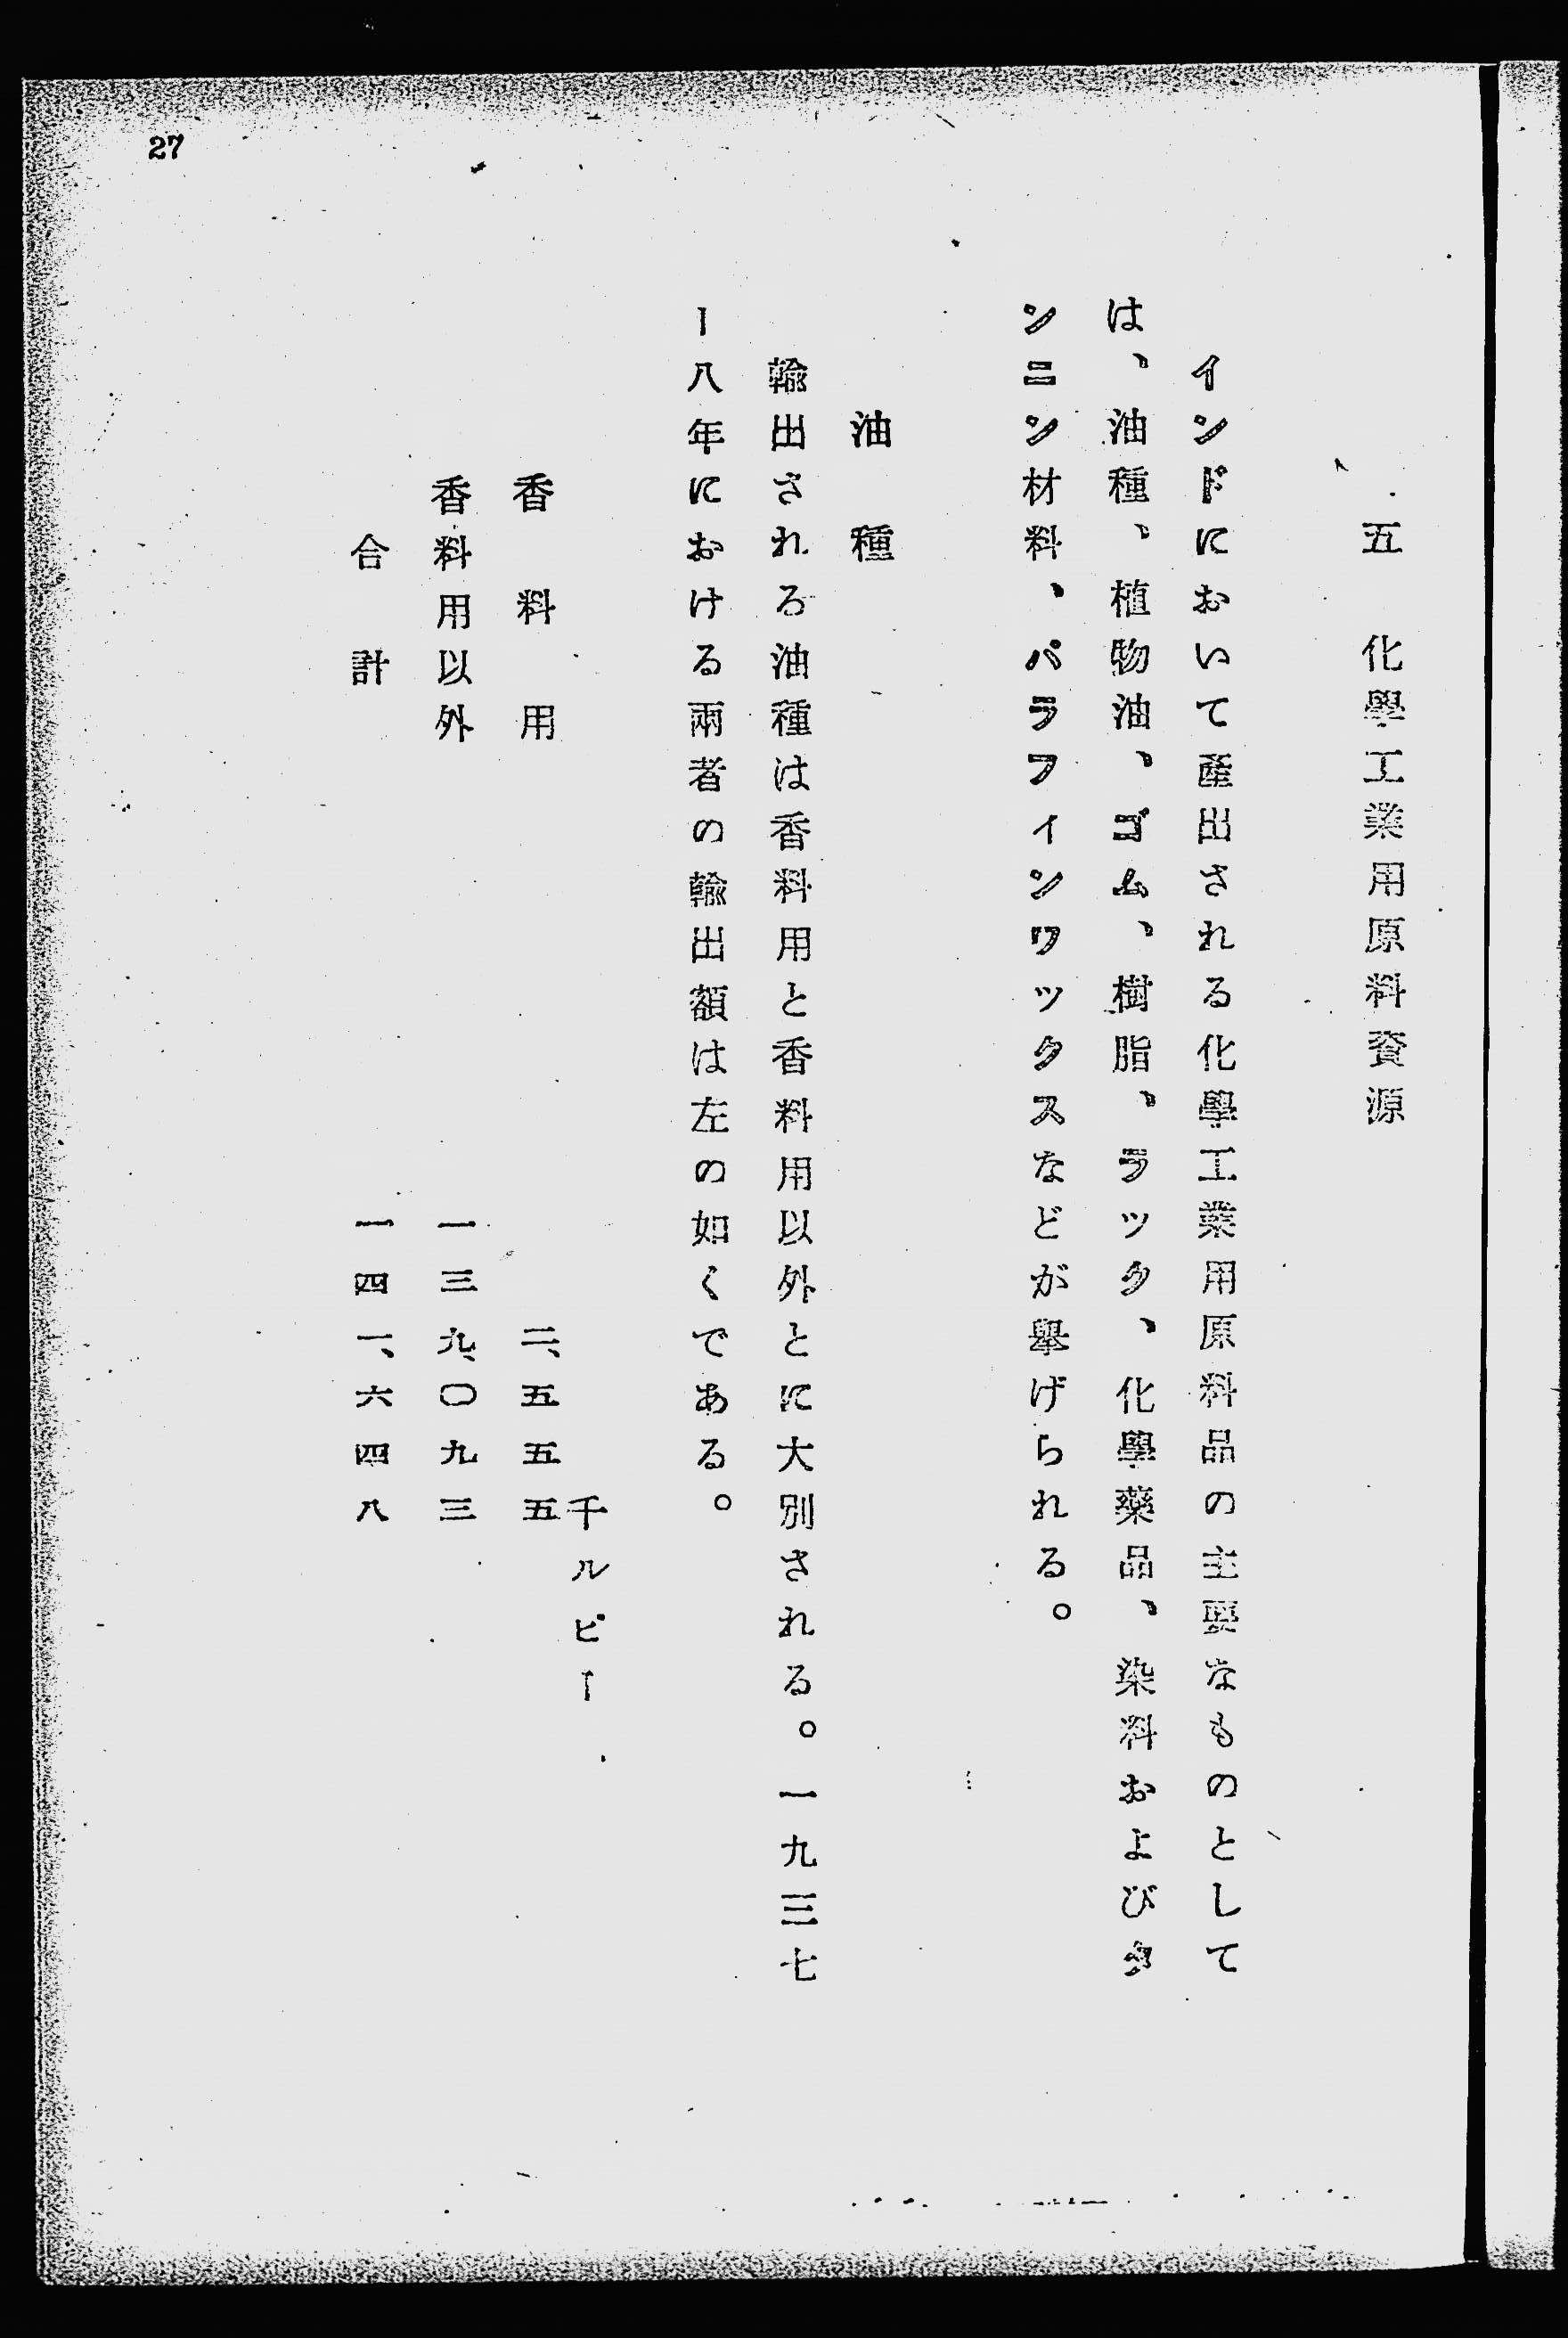 五　化學工業用原料資源
インドにおいて產出される化學工業用原料品の主要なものとして
は、油種、植物油、ゴム、樹脂、ラック、化學藥品、染料およびタ
ンニン材料、パラフィンワックスなどが擧げられる。
油種
輸出される油種は香料用と香料用以外とに大別される。一九三七
ー八年における兩者の輸出額は左の如くである。
千ルピー
香料用　二、五五五
香料用以外　一三九、〇九三
合計　一四一、六四八
27